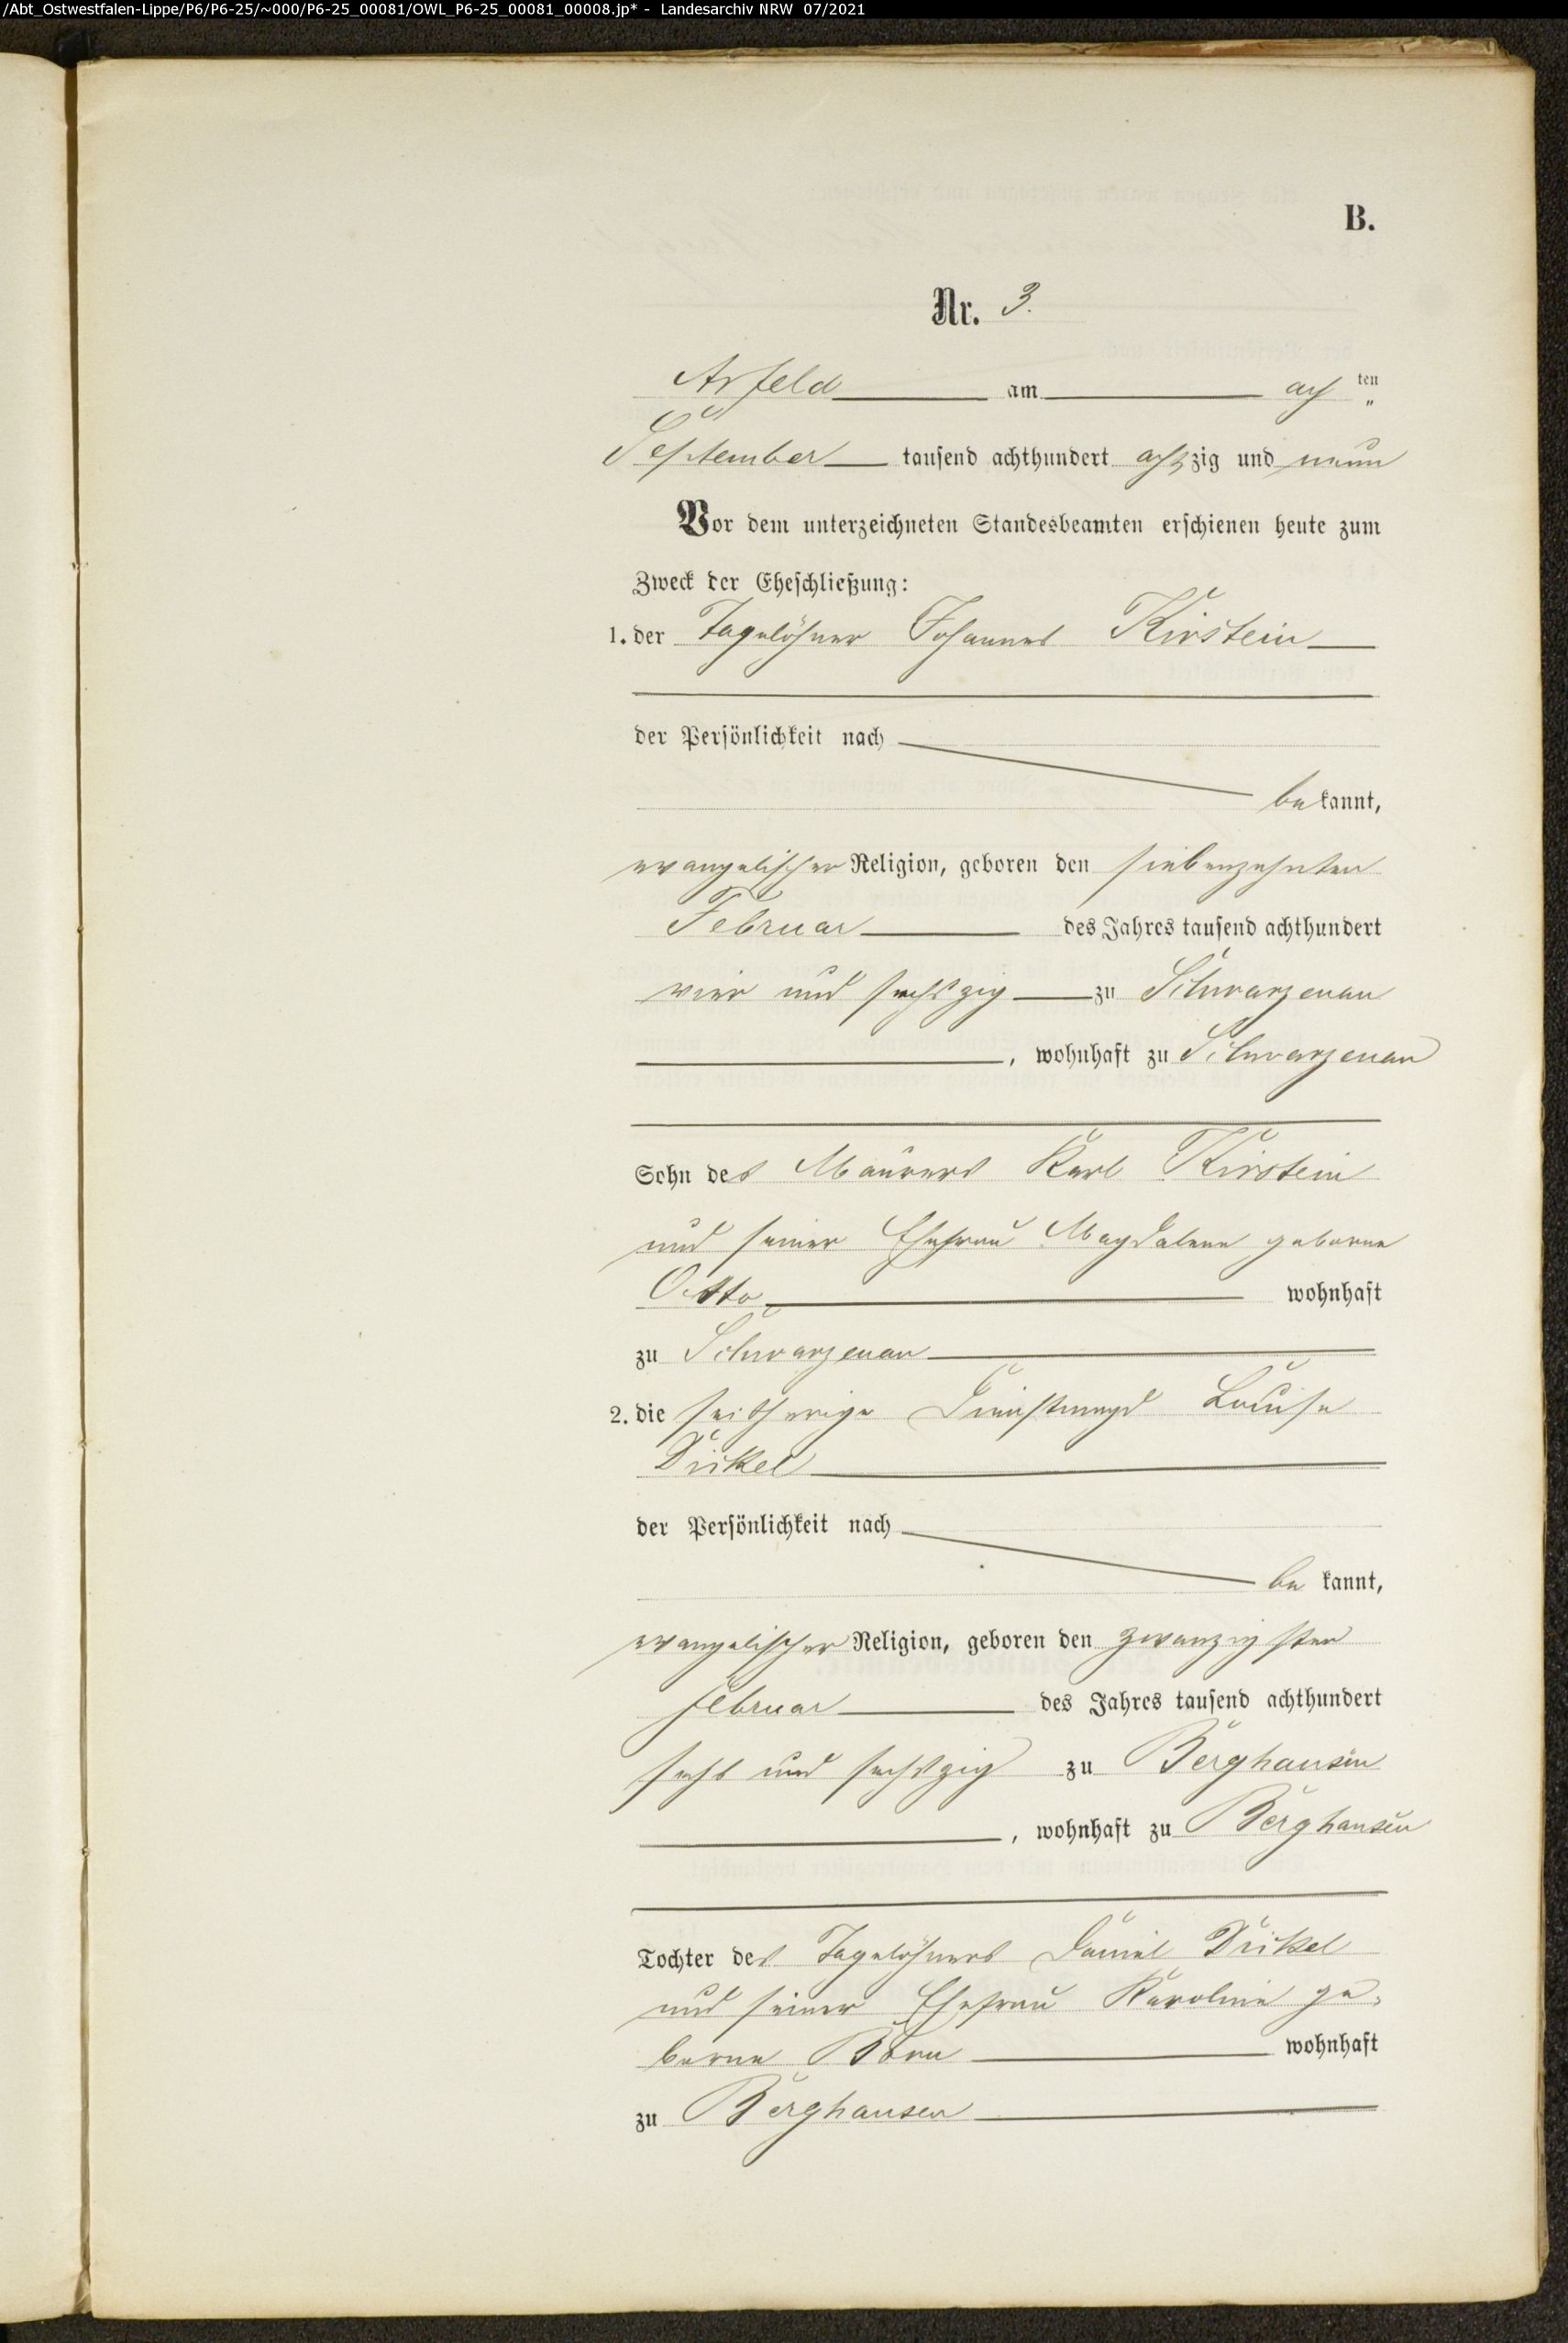 /Abt_Ostwestfalen-Lippe/P6/P6-25/~000/P6-25_00081/OWL_P6-25_00081_00008.jp* - Landesarchiv NRW 07/2021
B.
Nr. 3.
Arfeld am ach ten
September tausend achthundert achtzig und neun
Vor dem unterzeichneten Standesbeamten erschienen heute zum
Zweck der Eheschließung:
1. der Tagelöhner Johannes Kirstein
der Persönlichkeit nach
bekannt,
evangelischer Religion, geboren den siebenzehnten
Februar des Jahres tausend achthundert
vier und sechszig zu Schwarzenau
, wohnhaft zu Schwarzenau
Sohn des Maurers Karl Kirstein
und seiner Ehefrau Magdalene geborne
Otto wohnhaft
zu Schwarzenau
2. die seitherige Dienstmagd Louise
Dickel
der Persönlichkeit nach
bekannt,
evangelischer Religion, geboren den zwanzigsten
Februar des Jahres tausend achthundert
sechs und sechszig zu Berghausen
, wohnhaft zu Berghausen
Tochter des Tagelöhners Daniel Dickel
und seiner Ehefrau Karoline ge-
borne wohnhaft
zu Berghausen